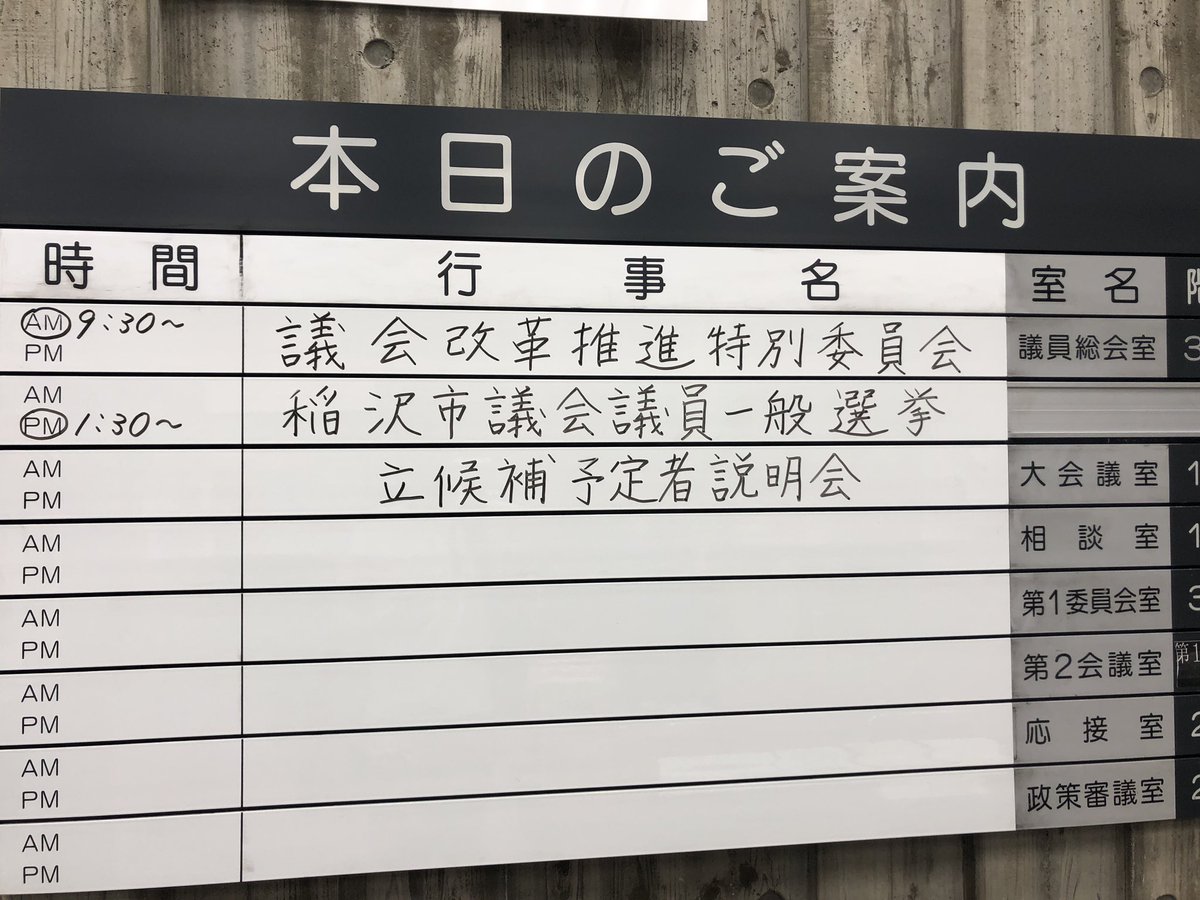 本日のご案内
時間 行事名 室名 階
AM 9:30~ 議会改革推進特別委員会 議員総会室 3
PM
AM 稲沢市議会議員一般選挙
PM 1:30~
AM 立候補予定者説明会 大会議室 1
PM
AM 相談室 1
PM
AM 第1委員会室 3
PM
AM 第2会議室 第1
PM
AM 応接室 2
PM
AM 政策審議室 2
PM